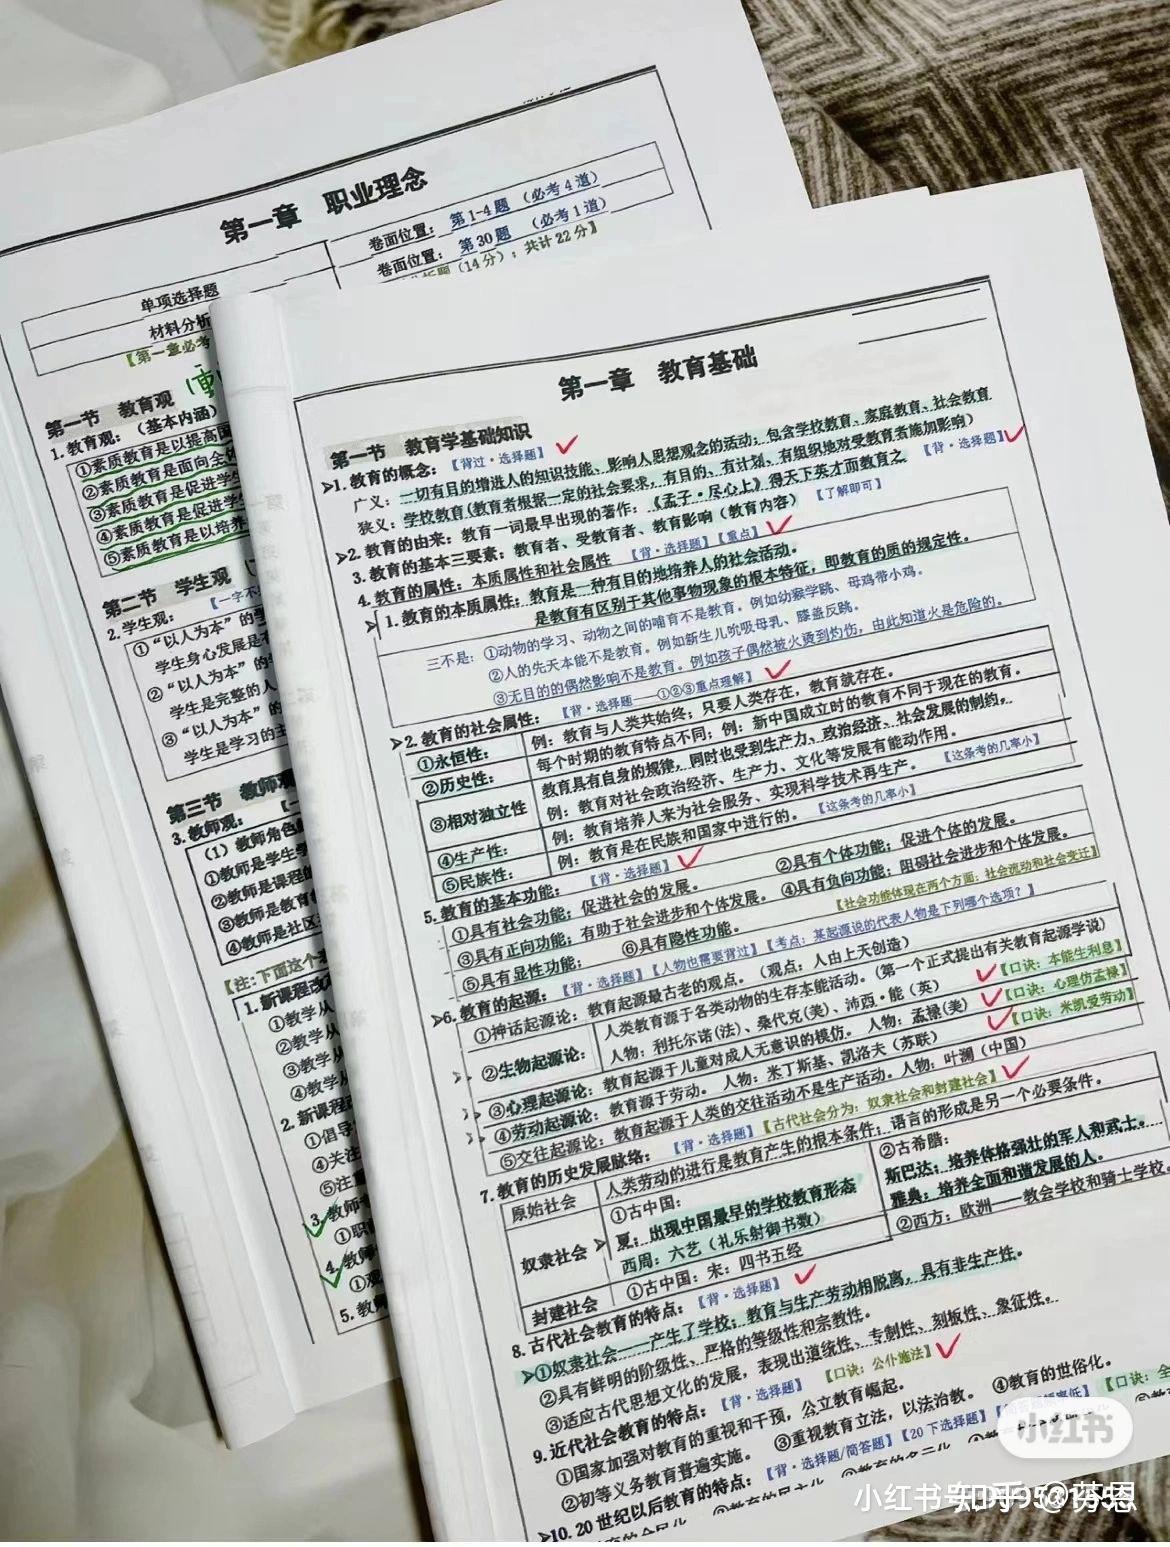 第一章 职业理念
单项选择题
卷面位置: 第1-4题 (必考4道)
材料分析
卷面位置: 第30题 (必考1道)
【第一章必考
(14分); 共计22分】
第一节 教育观
1.教育观: (基本内涵)
①素质教育是以提高国
②素质教育是面向全体
③素质教育是促进学生
④素质教育是促进学生
⑤素质教育是以培养
第二节 学生观
2.学生观: 【一字不
①“以人为本”的学
学生身心发展是有
②“以人为本”的
学生是完整的人
③“以人为本”的
学生是学习的主
第三节 教师观
3.教师观:
(1)教师角色的
①教师是学生学
②教师是课程的
③教师是教育教
④教师是社区
【注:下面这个
1.新课程改
①教学从
②教学从
③教学从
④教学从
2.新课程
①倡导
④关注
⑤注
3.教师
①职
4.教师
①观
5.教师
第一章 教育基础
第一节 教育学基础知识
1.教育的概念: 【背过·选择题】
广义: 一切有目的增进人的知识技能、影响人思想观念的活动; 包含学校教育、家庭教育、社会教育
狭义: 学校教育(教育者根据一定的社会要求, 有目的、有计划、有组织地对受教育者施加影响)
2.教育的由来: 教育一词最早出现的著作: 《孟子·尽心上》得天下英才而教育之 【背·选择题】
3.教育的基本三要素: 教育者、受教育者、教育影响(教育内容) 【了解即可】
4.教育的属性: 本质属性和社会属性 【背·选择题】【重点】
1.教育的本质属性: 教育是一种有目的地培养人的社会活动。
是教育有区别于其他事物现象的根本特征, 即教育的质的规定性。
三不是: ①动物的学习、动物之间的哺育不是教育。例如幼猴学跳、母鸡带小鸡。
②人的先天本能不是教育。例如新生儿吮吸母乳、膝盖反跳。
③无目的的偶然影响不是教育。例如孩子偶然被火烫到灼伤, 由此知道火是危险的。
2.教育的社会属性: 【背·选择题——①②③重点理解】
①永恒性: 例: 教育与人类共始终; 只要人类存在, 教育就存在。
②历史性: 每个时期的教育特点不同; 例: 新中国成立时的教育不同于现在的教育。
③相对独立性 教育具有自身的规律, 同时也受到生产力、政治经济、社会发展的制约,
例: 教育对社会政治经济、生产力、文化等发展有能动作用。
④生产性: 例: 教育培养人来为社会服务、实现科学技术再生产。 【这条考的几率小】
⑤民族性: 例: 教育是在民族和国家中进行的。 【这条考的几率小】
5.教育的基本功能: 【背·选择题】
①具有社会功能; 促进社会的发展。 ②具有个体功能; 促进个体的发展。
③具有正向功能; 有助于社会进步和个体发展。 ④具有负向功能; 阻碍社会进步和个体发展。
⑤具有显性功能; ⑥具有隐性功能。 【社会功能体现在两个方面: 社会流动和社会变迁】
6.教育的起源: 【背·选择题】【人物也需要背过】【考点: 某起源说的代表人物是下列哪个选项? 】
①神话起源论: 教育起源最古老的观点。(观点: 人由上天创造)
②生物起源论: 人类教育源于各类动物的生存本能活动。(第一个正式提出有关教育起源学说)
人物: 利托尔诺(法)、桑代克(美)、沛西·能(英) 【口诀: 本能生利息】
③心理起源论: 教育起源于儿童对成人无意识的模仿。 人物: 孟禄(美) 【口诀: 心理仿孟禄】
④劳动起源论: 教育源于劳动。 人物: 米丁斯基、凯洛夫(苏联) 【口诀: 米凯爱劳动】
⑤交往起源论: 教育起源于人类的交往活动不是生产活动。人物: 叶澜(中国)
7.教育的历史发展脉络: 【背·选择题】【古代社会分为: 奴隶社会和封建社会】
原始社会 人类劳动的进行是教育产生的根本条件; 语言的形成是另一个必要条件。
奴隶社会 ①古中国:
夏: 出现中国最早的学校教育形态
西周: 六艺(礼乐射御书数)
②古希腊:
斯巴达: 培养体格强壮的军人和武士。
雅典: 培养全面和谐发展的人。
封建社会 ①古中国: 宋: 四书五经 ②西方: 欧洲——教会学校和骑士学校。
8.古代社会教育的特点: 【背·选择题】
①奴隶社会——产生了学校; 教育与生产劳动相脱离, 具有非生产性。
②具有鲜明的阶级性、严格的等级性和宗教性。
③适应古代思想文化的发展, 表现出道统性、专制性、刻板性、象征性。
9.近代社会教育的特点: 【背·选择题】 【口诀: 公仆施法】
①国家加强对教育的重视和干预, 公立教育崛起。
②初等义务教育普遍实施。 ③重视教育立法, 以法治教。 ④教育的世俗化。
10.20世纪以后教育的特点: 【背·选择题/简答题】【20下选择题】 【口诀: 全
小红书
小红书号
知乎 @芬恩